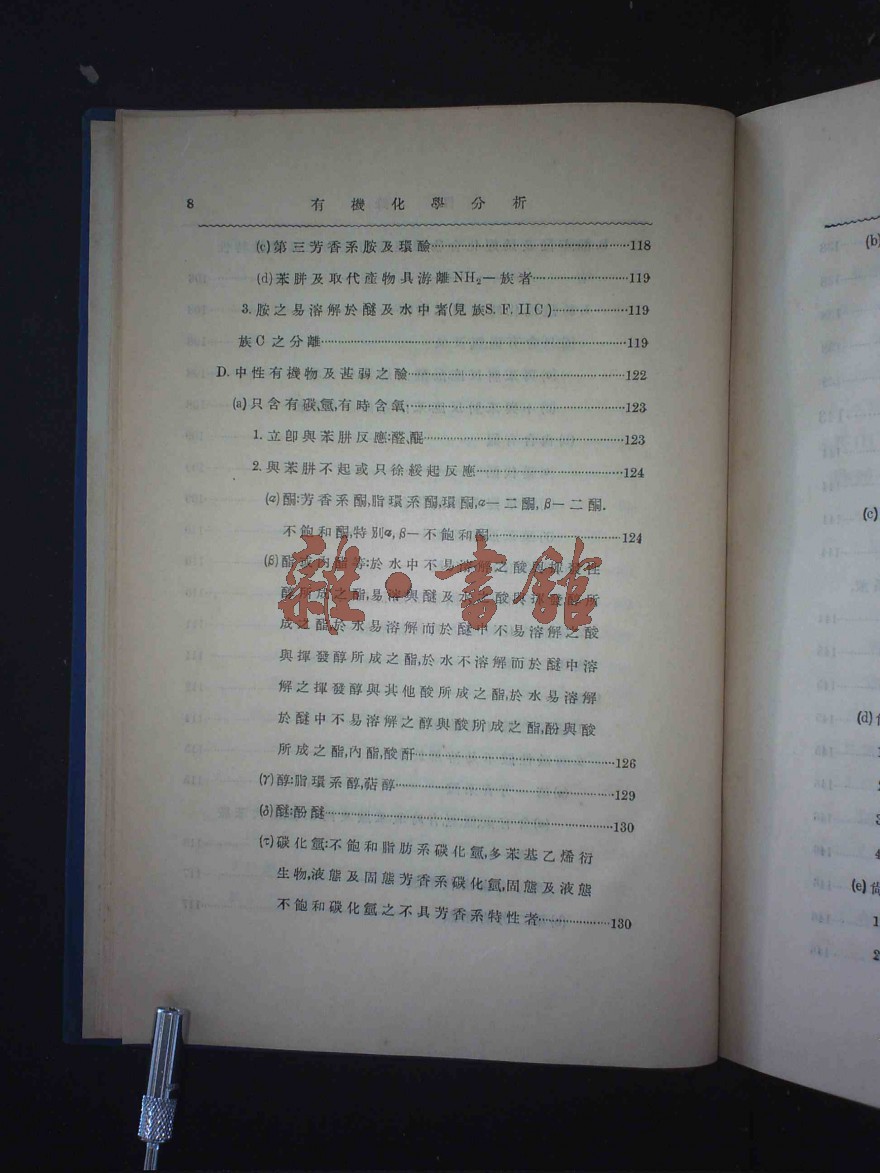 8 有機化學分析
(c)第三芳香系胺及環鹼……118
(d)苯肼及取代產物具游離NH₂一族者……119
3.胺之易溶解於醚及水中者(見族S.F.IIC)……119
族C之分離……119
D.中性有機物及甚弱之鹼……122
(a)只含有碳、氫,有時含氧……123
1.立卽與苯肼反應:醛、醌……123
2.與苯肼不起或只徐緩起反應……124
(α)酮:芳香系酮,脂環系酮,環酮,α—二酮,β—二酮.
不飽和酮,特別α,β—不飽和酮……124
(β)酯或內酯等:於水中不易溶解之酸與揮發性
醇所成之酯,易溶與醚及水之酸與揮發醇所
成之酯,於水易溶解而於醚中不易溶解之酸
與揮發醇所成之酯,於水不溶解而於醚中溶
解之揮發醇與其他酸所成之酯,於水易溶解
於醚中不易溶解之醇與酸所成之酯,酚與酸
所成之酯,內酯,酸酐……126
(γ)醇:脂環系醇,萜醇……129
(δ)醚:酚醚……130
(τ)碳化氫:不飽和脂肪系碳化氫,多苯基乙烯衍
生物,液態及固態芳香系碳化氫,固態及液態
不飽和碳化氫之不具芳香系特性者……130
雜·書館
(b)
(c)
(d)
1
2
3
4
(e)
1
2